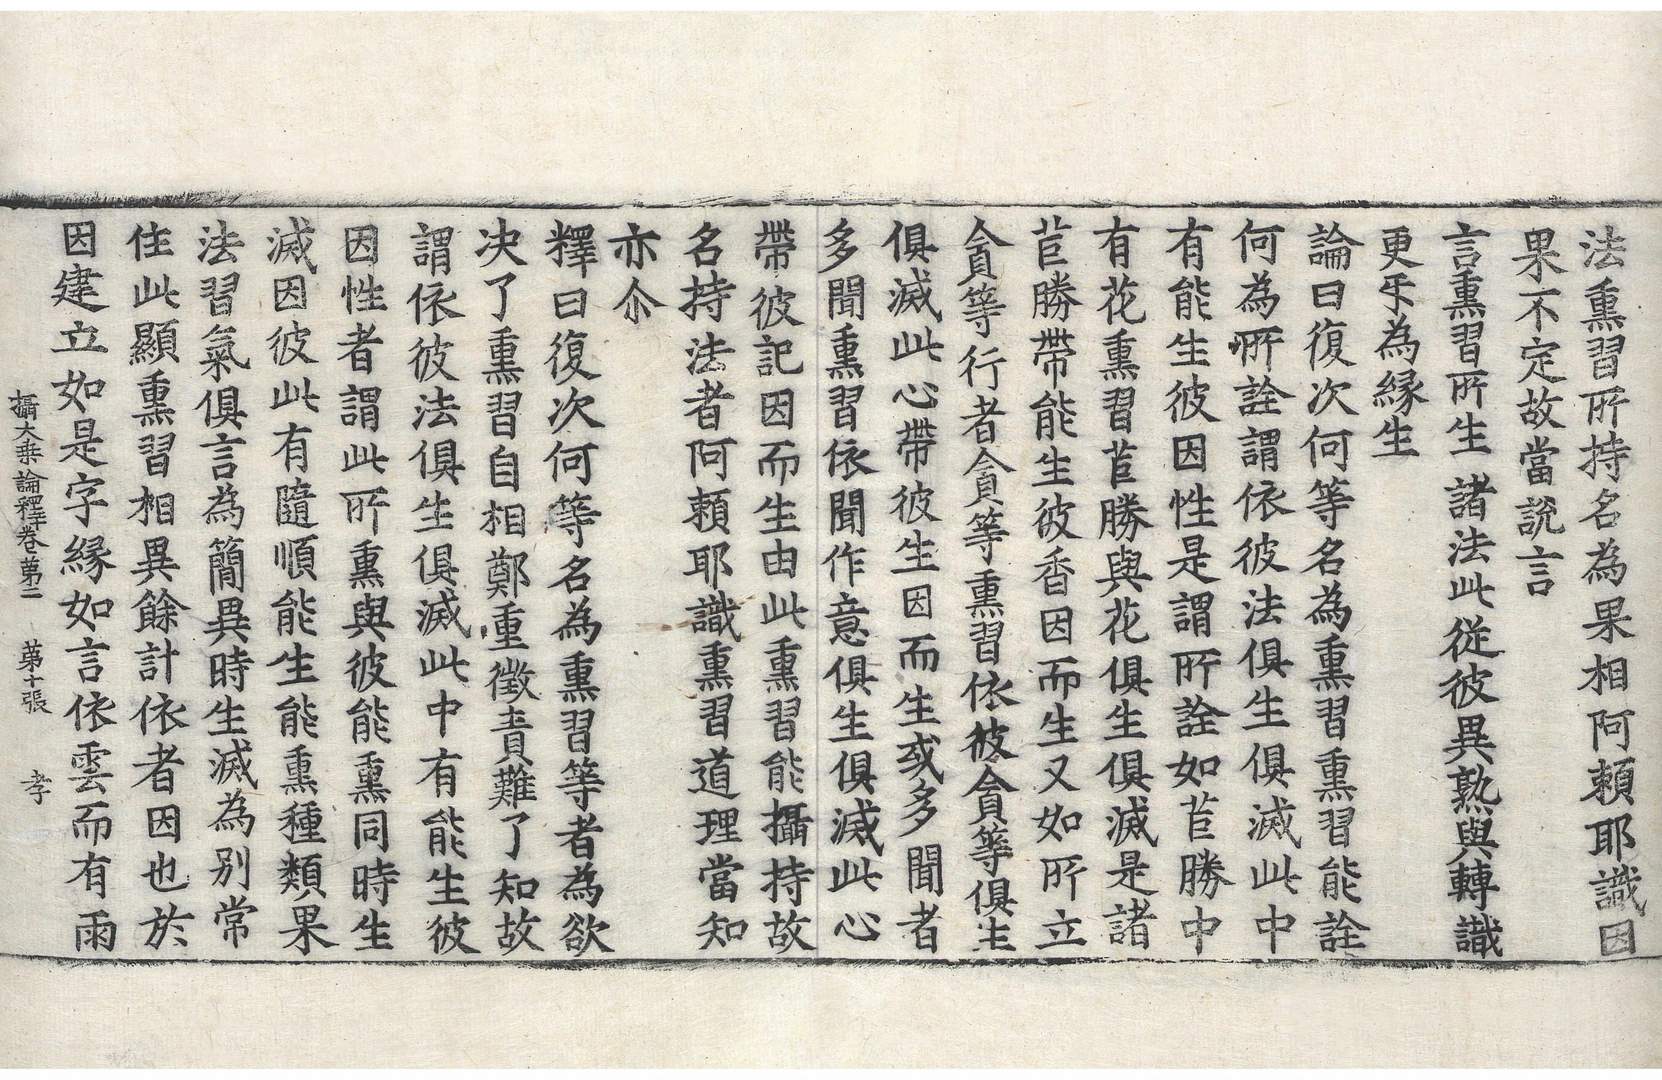 法熏習所持名為果相阿頼耶識因
果不定故當說言
言熏習所生諸法此從彼異熟與轉識
更乐為縁生
論曰復次何等名為熏習熏習能詮
何為所詮謂依彼法俱生俱滅此中
有能生彼因性是謂所詮如苣勝中
有花熏習苣勝與花俱生俱滅是諸
苣勝帶能生彼香因而生又如所立
貪等行者貪等熏習依彼貪等俱生
俱滅此心帶彼生因而生或多聞者
多聞熏習依聞作意俱生俱滅此心
帶彼記因而生由此熏習能攝持故
名持法者阿頼耶識熏習道理當知
亦尒
釋曰復次何等名為熏習等者為欲
决了熏習自相鄭重徵責難了知故
謂依彼法俱生俱滅此中有能生彼
因性者謂此所熏與彼能熏同時生
滅因彼此有隨順能生能熏種類果
法習氣俱言為簡異時生滅為別常
住此顯熏習相異餘計依者因也於
因建立如是字縁如言依雲而有雨
攝大乗論釋卷苐二 苐十張 孝